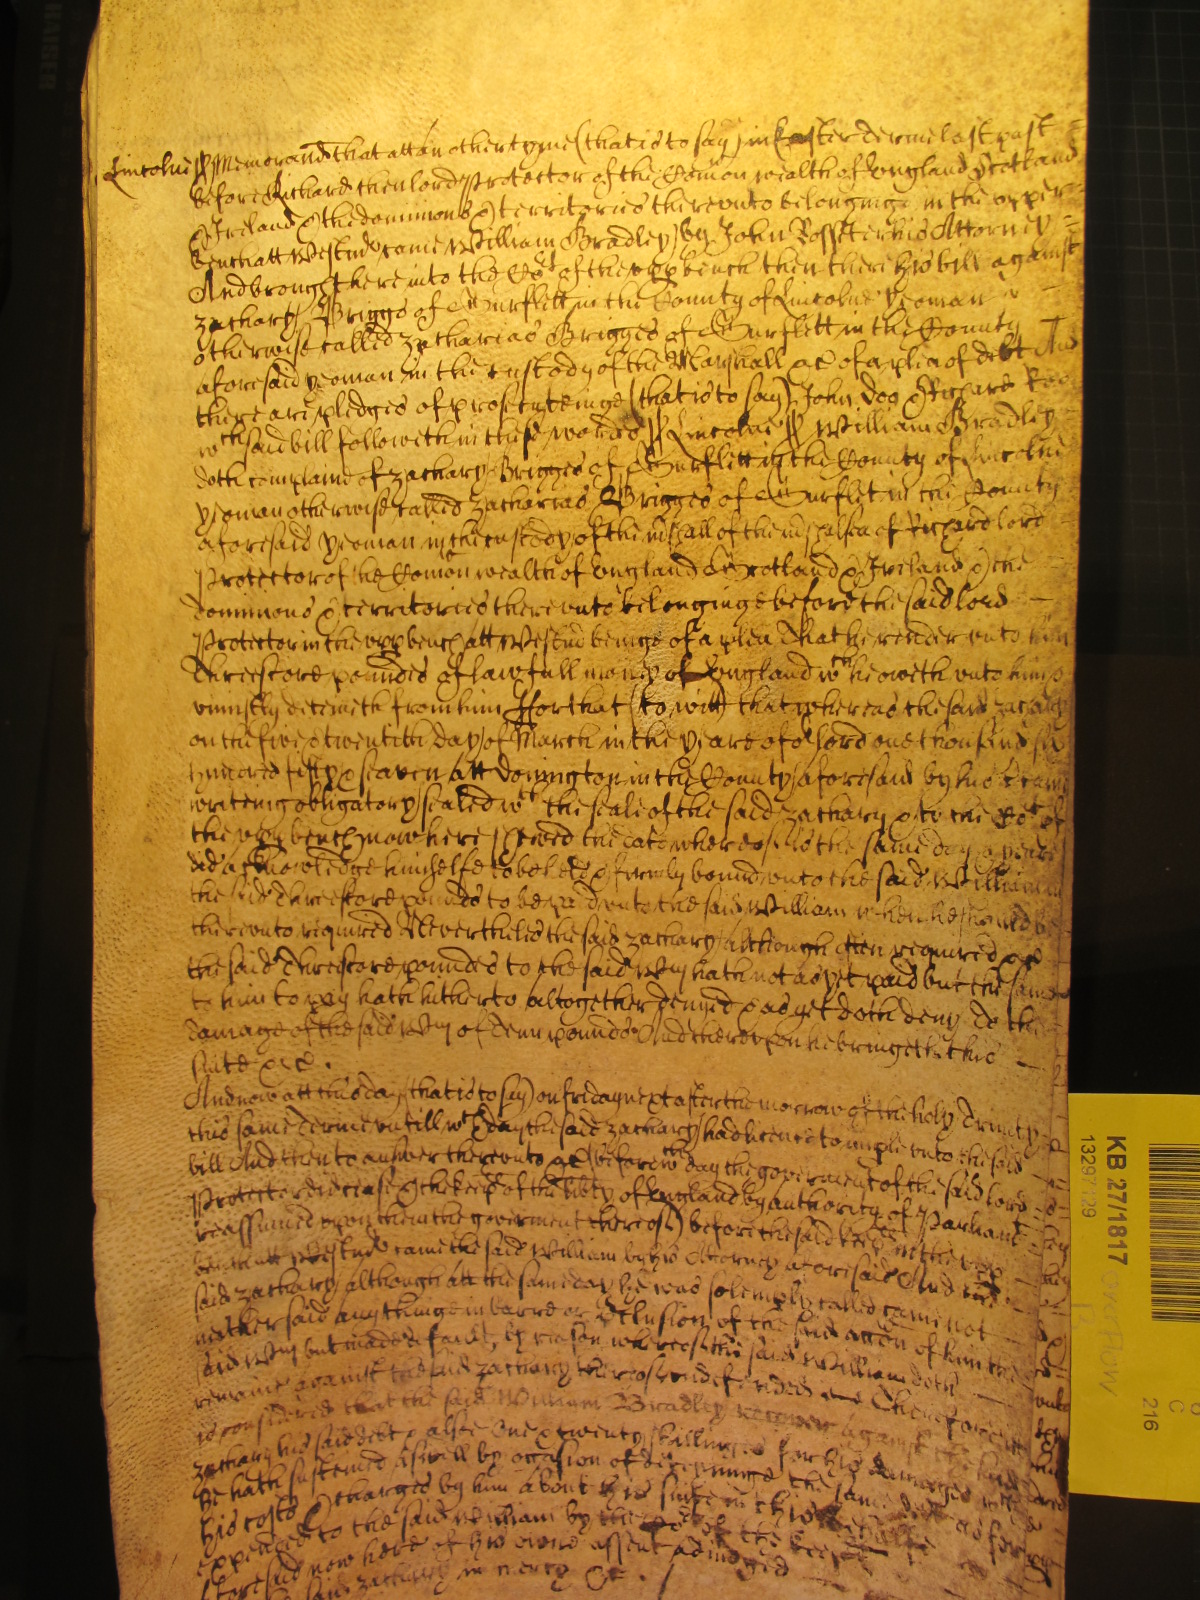 Lincolne ss Memorand that att an other tyme (that is to say) in Easter Terme last past
before Richard then lord Protector of the Comon wealth of England Scotland
& Ireland & the dominions & territories thereunto belonginge in the upper
bench att Westmr came William Bradley by John Rosseter his Attorney
And brought here into the Cort of the upp bench then there his bill against
Zachary Briggs of Surflett in the County of Lincolne yeoman
otherwise called Zacharias Brigges of Surflett in the County
aforesaid yeoman in the custody of the Marshall &c of a plea of debt And
there are pledges of prosecuteinge (that is to say) John Doo & Richard Roo
wch said bill followeth in these words ss Lincolne ss William Bradley
doth complaine of Zachary Brigges of Surflett in the County of Lincolne
yeoman otherwise called Zacharias Brigges of Surflet in the County
aforesaid yeoman in the custody of the mshall of the mshalsea of Richard lord
Protector of the Comon wealth of England Scotland & Ireland & the
dominions & territories thereunto belonginge before the said lord
Protector in the upp bench att Westmr beinge of a plea That he render unto him
Threescore poundes of lawfull money of England wch he oweth unto him &
uniustly deteineth from him For that (to witt) that whereas the said Zachary
on the five & twentith day of March in the yeare of or lord one thousand six
hundred fifty & seaven att Donington in the County aforesaid by his certaine
writeing obligatory sealed wth the seale of the said Zachary & to the Cort of
the upp bench now here shewed the date whereof is the same day & yeare
did acknowledge himselfe to be held & firmly bound unto the said William in
the said Threescore pounds to be paid unto the said William when he should be
thereunto required Neverthelesse the said Zachary although often required &c
the said Threescore poundes to the said Wm hath not as yet paid but the same
to him to pay hath hitherto altogether denyed & as yet doth deny To the
damage of the said Wm of Tenn pounds And thereupon he bringeth this
suite &c.
And now att this day (that is to say) on friday next after the morrow of the holy Trinity
this same Terme untill wch day the said Zachary had licence to imple unto the said
bill And then to answer thereunto &c (before wch day the goverment of the said lord
Protector did cease & the keeps of the libty of England by authority of Parliamt
reassumed upon them the goverment thereof) before the said keeps in the upp
bench att Westmr came the said William by his Attorney aforesaid And the
said Zachary although att the same day he was solemply called came not
neither said any thinge in barre or of the said accon of him the
said Wm but made default, by reason whereof the said William doth
remaine against the said Zachary thereof undefended Therefore it
is considered that the said William Bradley recover against the said
Zachary his said debt & alsoe One & twenty shillings for his damages wch
he hath susteined aswell by occasion of deteyninge the same debt as for
his costs & charges by him about his suite in this
expended to the said William by the Cort of the keeps
aforesaid now here of his owne assent adiudged
said Zachary in mercy &c.
KB 27/1817
1397129
overflow
C
216